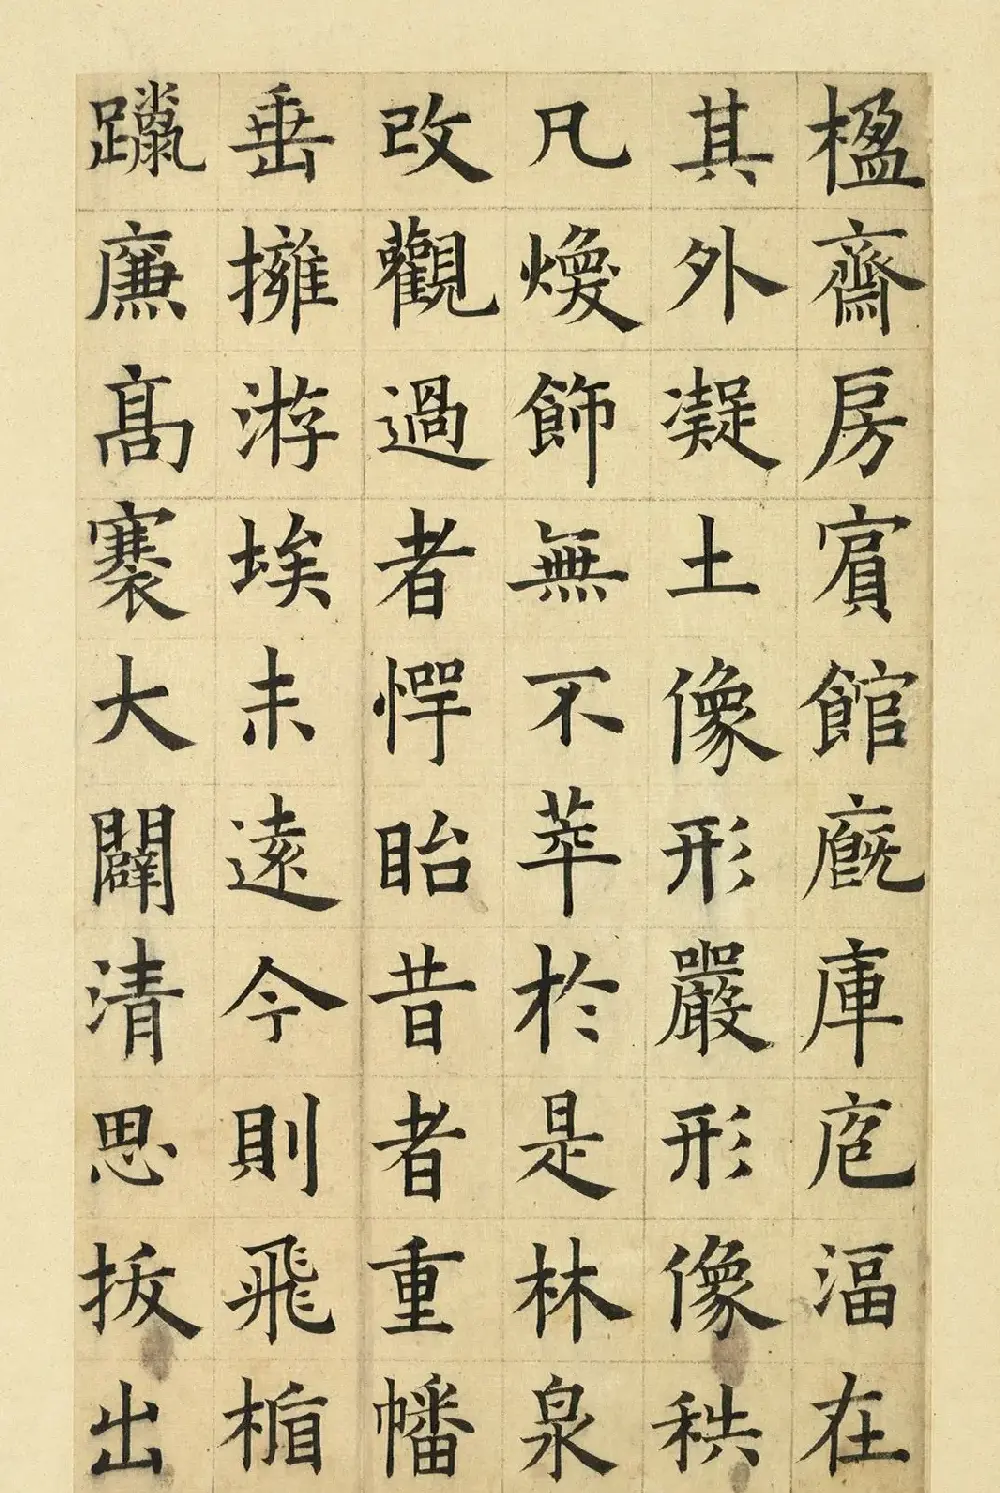 楹齋房賔館廐庫庖湢在
其外凝土像形嚴形像秩
凡煥飾無不萃於是林泉
改觀過者愕眙昔者重幡
垂擁游埃未遠今則飛楯
躐廉高褰大闢清思拔出